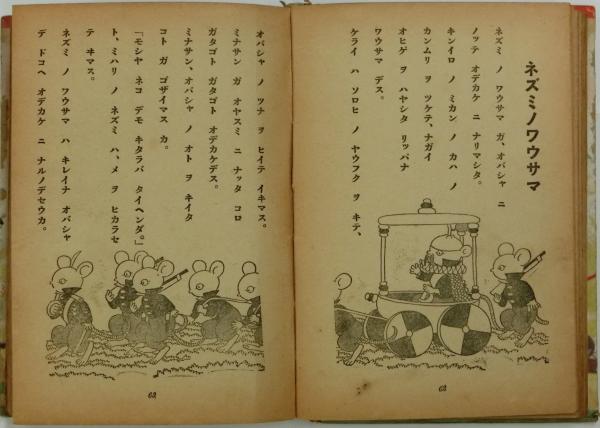 ネズミノワウサマ
ネズミ ノ ワウサマ ガ、オバシャ ニ
ノッテ オデカケ ニ ナリマシタ。
キンイロ ノ ミカン ノ カハ ノ
カンムリ ヲ ツケテ、ナガイ
オヒゲ ヲ ハヤシタ リッパナ
ワウサマ デス。
ケライ ハ ソロヒ ノ ヤウフク ヲ キテ、
62
オバシャ ノ ツナ ヲ ヒイテ イキマス。
ミナサン ガ オヤスミ ニ ナッタ コロ
ガタゴト ガタゴト オデカケデス。
ミナサン、オバシャ ノ オト ヲ キイタ
コト ガ ゴザイマス カ。
「モシヤ ネコ デモ キタラバ タイヘンダ。」
ト、ミハリ ノ ネズミ ハ、メ ヲ ヒカラセ
テ ヰマス。
ネズミ ノ ワウサマ ハ キレイナ オバシャ
デ ドコヘ オデカケ ニ ナルノデセウカ。
63